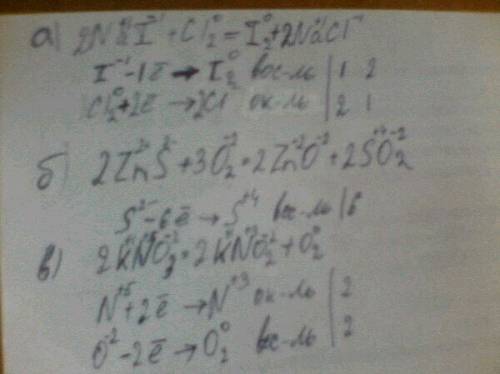 а) 2NaI⁻¹ + Cl₂⁰ = I₂⁰ + 2NaCl⁻¹
I⁻¹ - 1ē → I₂⁰ вос-ль | 1 2
Cl₂⁰ + 2ē → 2Cl⁻ ок-ль | 2 1
б) 2Zn⁺²S⁻² + 3O₂⁰ = 2Zn⁺²O⁻² + 2S⁺⁴O₂⁻²
S⁻² - 6ē → S⁺⁴ вос-ль | 6
в) 2KN⁺⁵O₃⁻² = 2KN⁺³O₂⁻² + O₂⁰
N⁺⁵ + 2ē → N⁺³ ок-ль | 2
O⁻² - 2ē → O₂⁰ вос-ль | 2